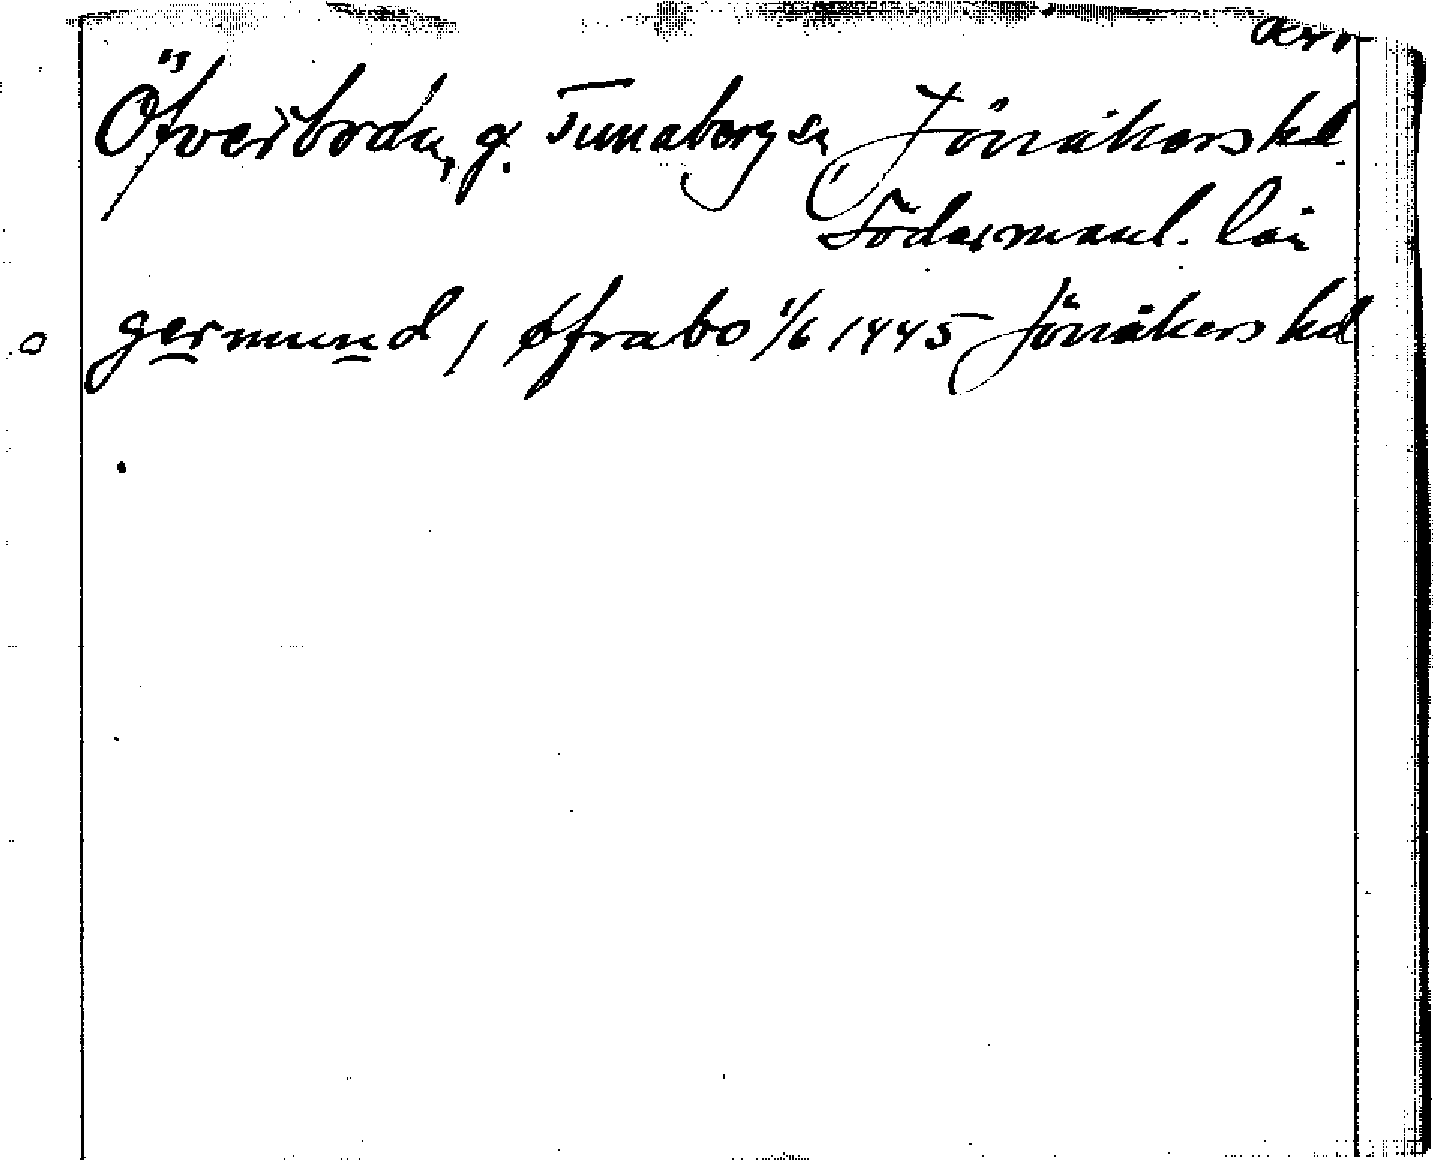 Öfverboda, g. Tunaberg sn Jönåkers hd
Södermanl. län
germund, i øfrabo 1/6 1445 Jönåkers hd